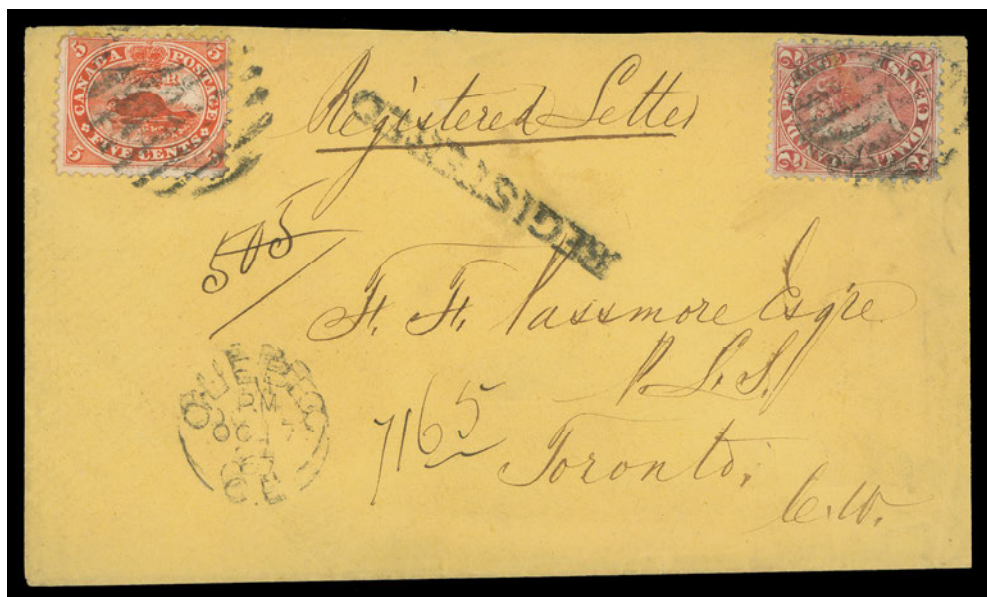 5 CANADA POSTAGE 5
5 FIVE CENTS 5
2 2
2 TWO 2
Registered Letter
REGISTERED
505
F. F. Passmore Esqre
P. L. S.
Toronto,
C.W.
7165
QUEBEC
PM
OC 7
C.E